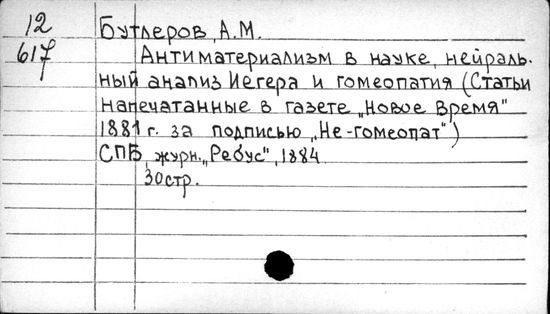 12 Бутлеров, А.М.
617 Антиматериализм в науке, нейраль-
ный анализ Иегера и гомеопатия (Статьи
напечатанные в газете „Новое Время"
1881 г. за подписью „Не-гомеопат")
СПБ, журн. „Ребус", 1884
30стр.